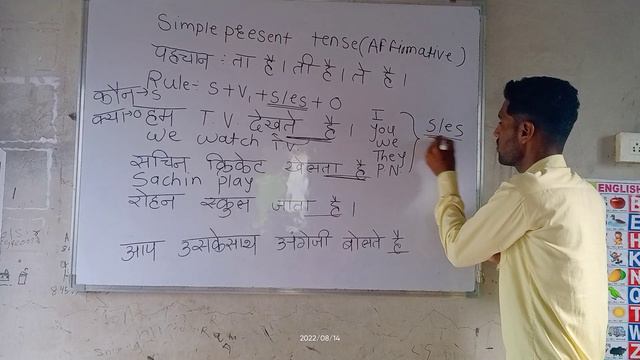 Simple present tense (Affirmative)
पहचान : ता है। ती है। ते है।
Rule- S+V1+s/es+O
कौन→S
क्या→O हम T.V. देखते है।
We watch T.V.
सचिन क्रिकेट खेलता है
Sachin play
रोहन स्कुल जाता है।
आप उसकेसाथ अंग्रेजी बोलते है
I
You
We
They
P.N
s/es
ENGLISH
2022/08/14